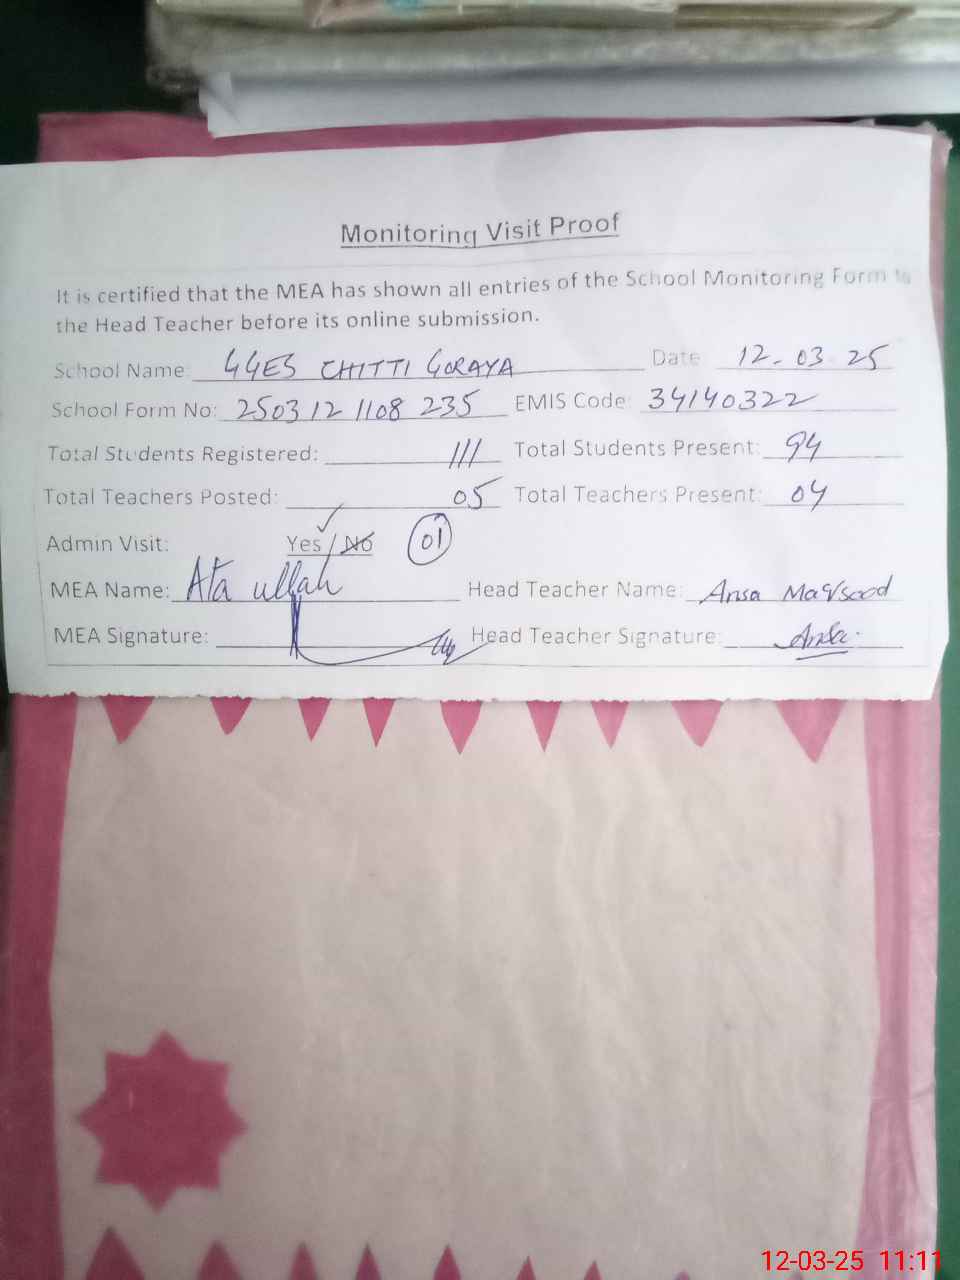 Monitoring Visit Proof
It is certified that the MEA has shown all entries of the School Monitoring Form to
the Head Teacher before its online submission.
School Name: GGES CHITTI GORAYA Date 12-03-25
School Form No: 250312 1108 235 EMIS Code: 34140322
Total Students Registered: 111 Total Students Present: 94
Total Teachers Posted: 05 Total Teachers Present: 04
Admin Visit: Yes / No 01
MEA Name: Ata ullah Head Teacher Name: Ansa Maqsood
MEA Signature: Head Teacher Signature: Ansa
12-03-25 11:11